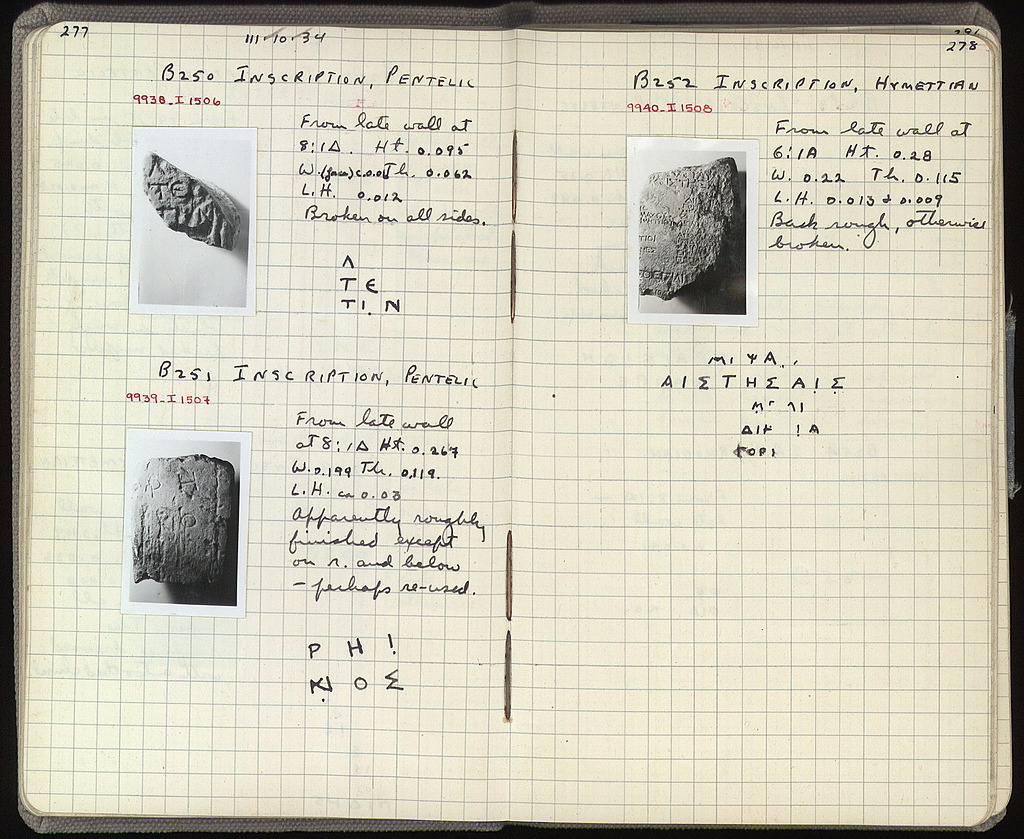 277
111-10-34
B250 INSCRIPTION, PENTELIC
9938-I 1506
From late wall at
8:1Δ. Ht. 0.095
W. (face) Th. 0.062
L.H. 0.012
Broken on all sides.
Λ
Τ Є
Τ Ι Ν
B251 INSCRIPTION, PENTELIC
9939-I 1507
From late wall
at 8:1Δ Ht. 0.267
W. 0.199 Th. 0.119.
L.H. ca 0.03
Apparently roughly
finished except
on r. and below
– perhaps re-used.
Ρ Η
Ο Σ
278
B252 INSCRIPTION, HYMETTIAN
9940-I 1508
From late wall at
6:1A Ht. 0.28
W. 0.22 Th. 0.115
L.H. 0.013 & 0.009
Back rough, otherwise
broken.
ΜΙ Ψ Α
Α Ι Σ Τ Η Σ Α Ι Σ
ΔΙΚ Ι Α
ΟΡΙ